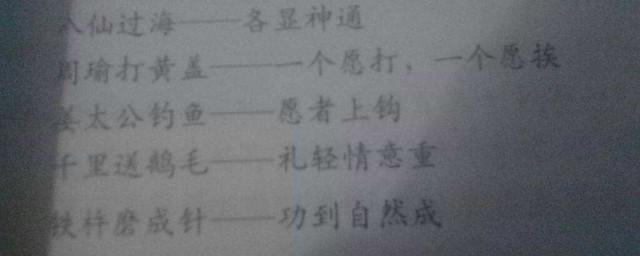 八仙过海——各显神通
周瑜打黄盖——一个愿打，一个愿挨
姜太公钓鱼——愿者上钩
千里送鹅毛——礼轻情意重
铁杵磨成针——功到自然成